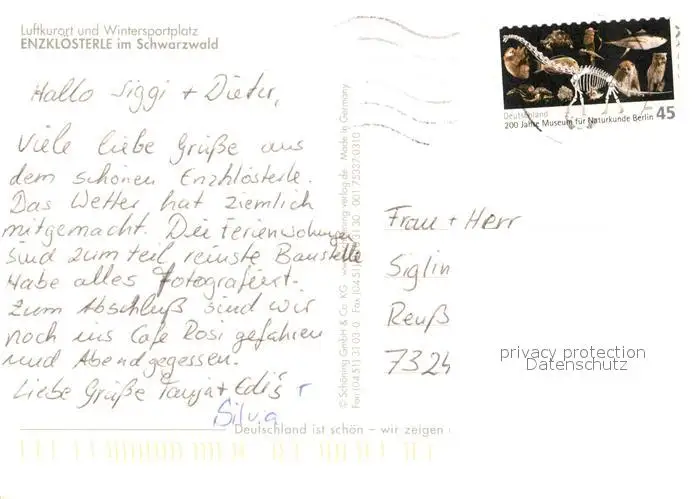 Luftkurort und Wintersportplatz
ENZKLÖSTERLE im Schwarzwald
Hallo Siggi + Dieter,
Viele liebe Grüße aus
dem schönen Enzklösterle.
Das Wetter hat ziemlich
mitgemacht. Die Ferienwohnungen
sind zum teil reinste Baustelle
Habe alles Fotografiert.
Zum Abschluß sind wir
noch ins Cafe Rosi gefahren
und Abendgegessen.
Liebe Grüße Tanja + Edi's
Silvia
© Schöning GmbH & Co. KG
Made in Germany
Deutschland
200 Jahre Museum für Naturkunde Berlin 45
Frau + Herr
Siglin
Reuß
7324
privacy protection
Datenschutz
Deutschland ist schön – wir zeigen